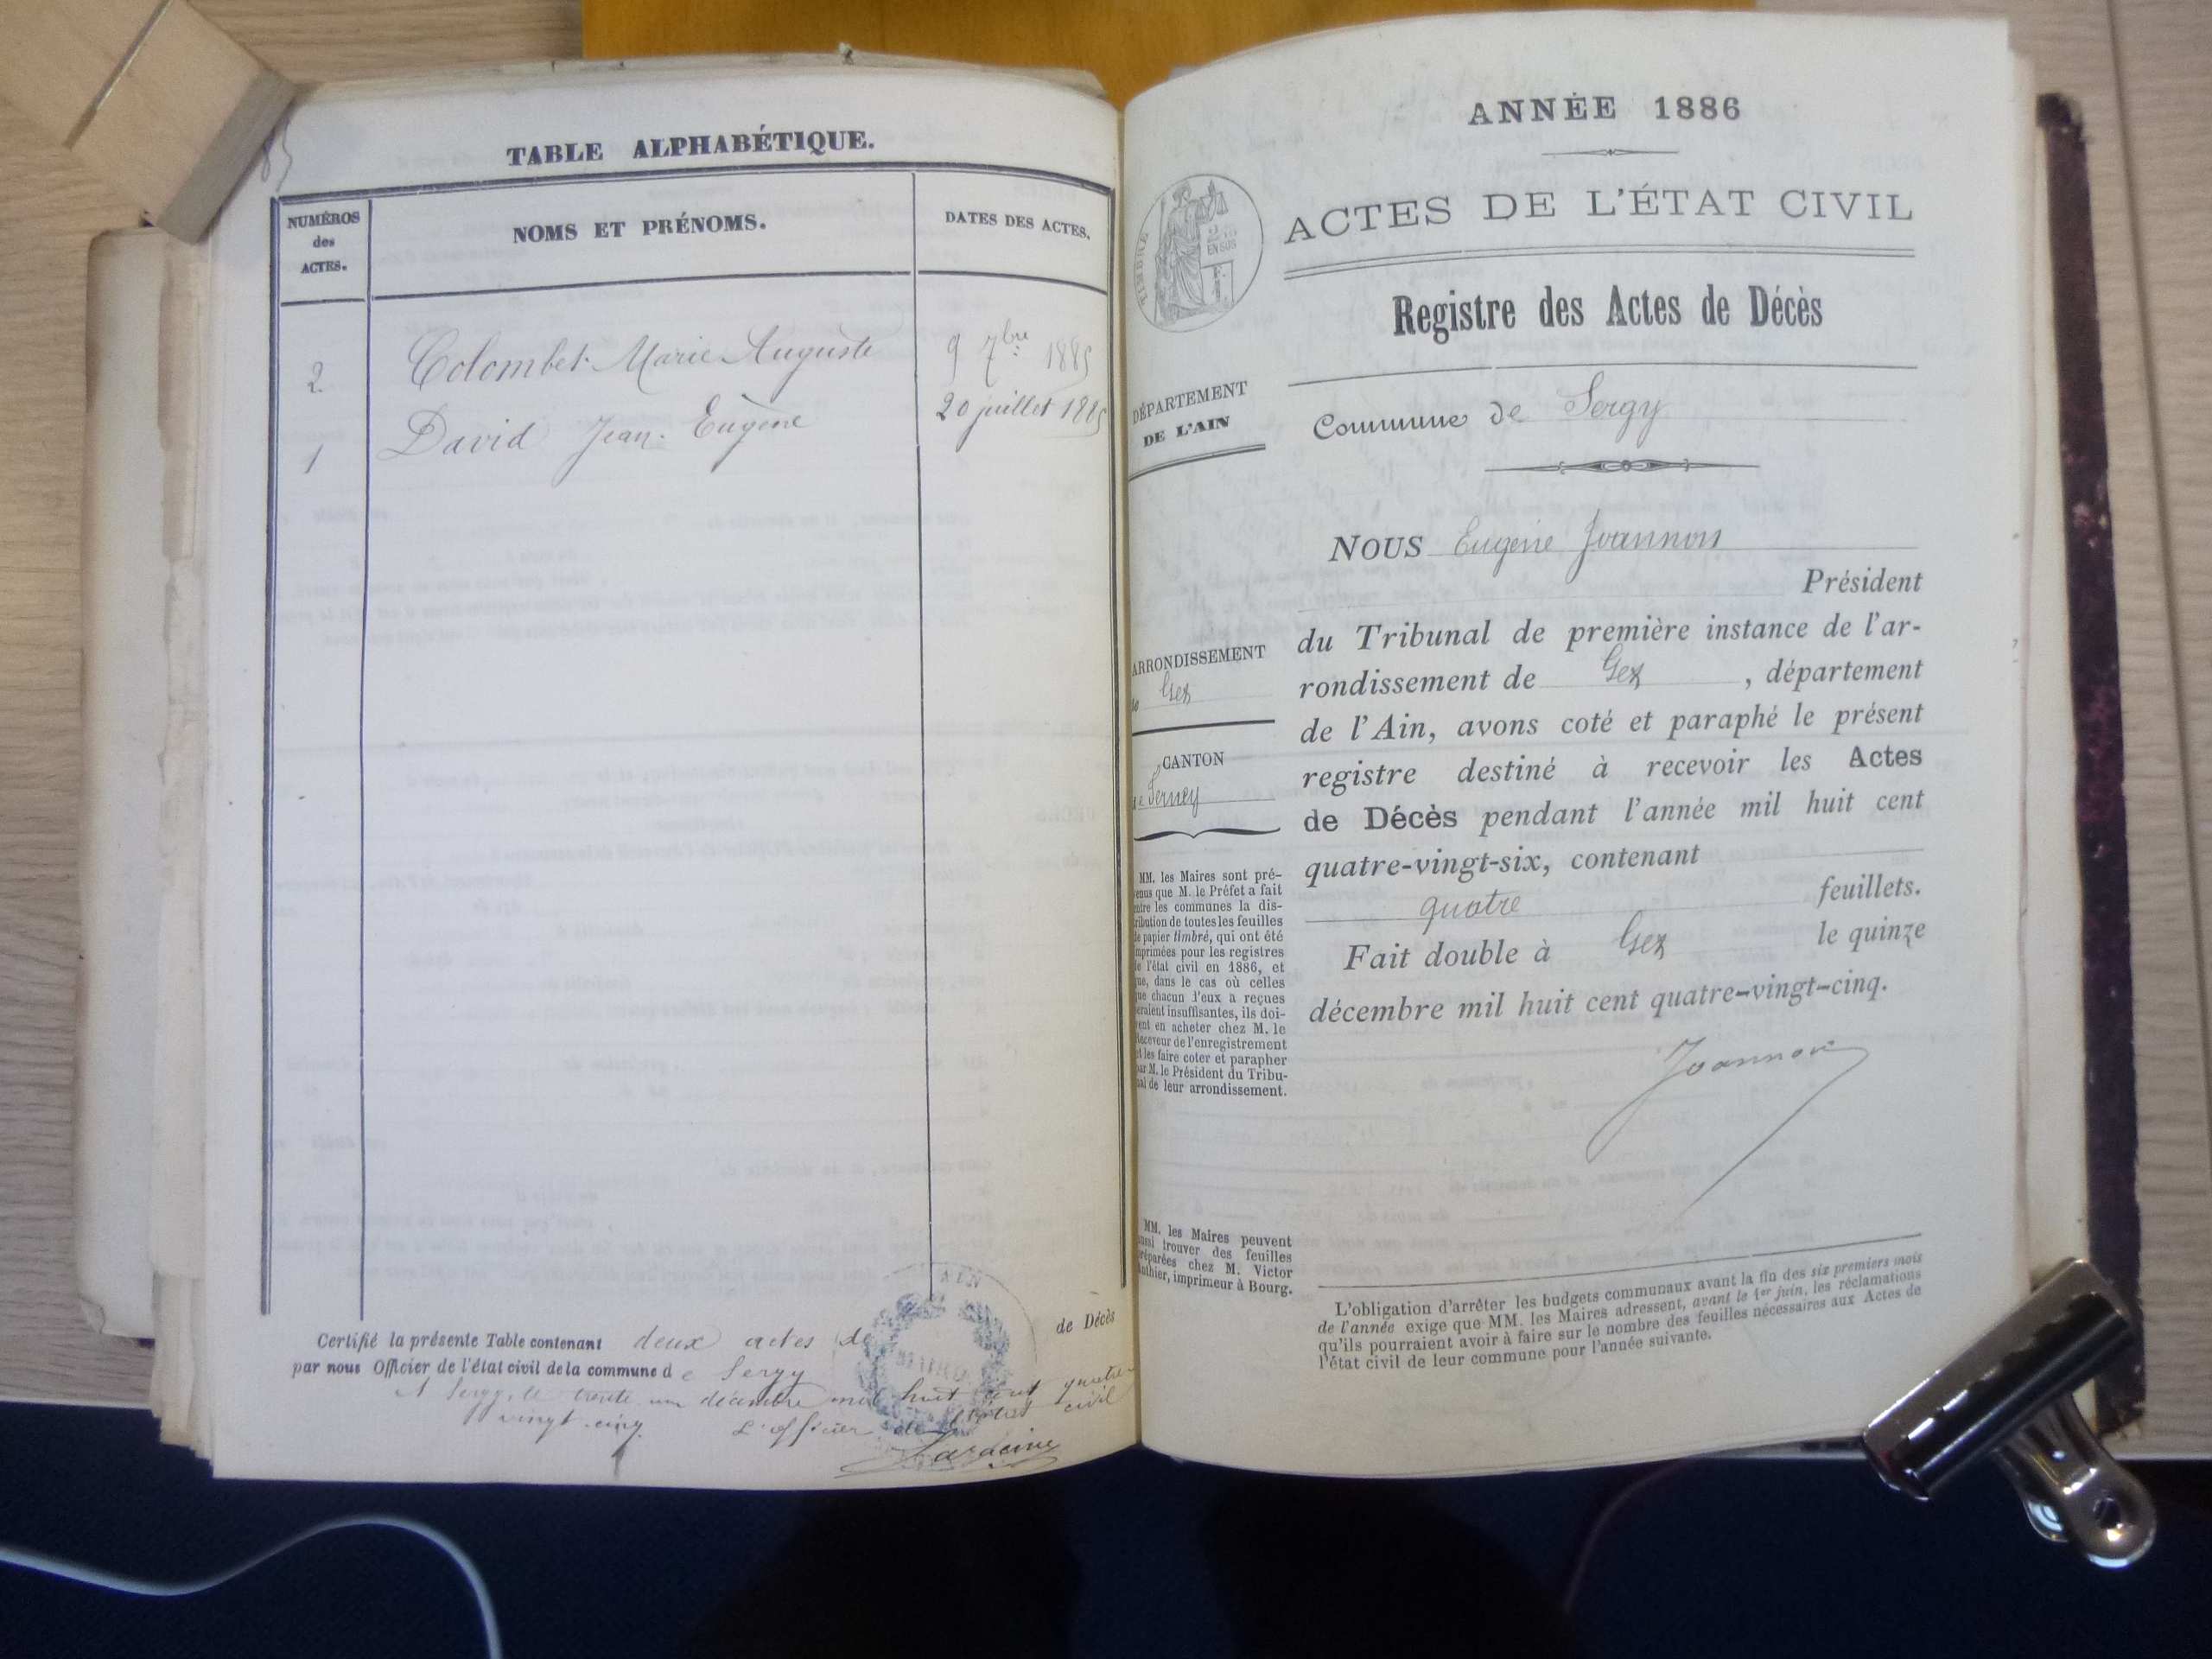 TABLE ALPHABÉTIQUE.
NUMÉROS
des
ACTES.
NOMS ET PRÉNOMS.
DATES DES ACTES.
2 Colombet Marie Auguste 9 7bre 1885
1 David Jean Eugène 20 juillet 1885
Certifié la présente Table contenant deux actes de de Décès
par nous Officier de l'état civil de la commune de Sergy
A Sergy, le trente un décembre mil huit cent quatre
vingt-cinq. L'officier de l'état civil
ANNÉE 1886
TIMBRE
EN SUS
ACTES DE L'ÉTAT CIVIL
Registre des Actes de Décès
DÉPARTEMENT
DE L'AIN
Commune de Sergy
ARRONDISSEMENT
Gex
CANTON
de Ferney
MM. les Maires sont pré-
venus que M. le Préfet a fait
entre les communes la dis-
tribution de toutes les feuilles
de papier timbré, qui ont été
imprimées pour les registres
de l'état civil en 1886, et
que, dans le cas où celles
que chacun l'eux a reçues
seraient insuffisantes, ils doi-
vent en acheter chez M. le
Receveur de l'enregistrement
et les faire coter et parapher
par M. le Président du Tribu-
nal de leur arrondissement.
MM. les Maires peuvent
aussi trouver des feuilles
préparées chez M. Victor
imprimeur à Bourg.
NOUS Eugène Joannon
Président
du Tribunal de première instance de l'ar-
rondissement de Gex, département
de l'Ain, avons coté et paraphé le présent
registre destiné à recevoir les Actes
de Décès pendant l'année mil huit cent
quatre-vingt-six, contenant
quatre feuillets.
Fait double à Gex le quinze
décembre mil huit cent quatre-vingt-cinq.
Joannon
L'obligation d'arrêter les budgets communaux avant la fin des six premiers mois
de l'année exige que MM. les Maires adressent, avant le 1er juin, les réclamations
qu'ils pourraient avoir à faire sur le nombre des feuilles nécessaires aux Actes de
l'état civil de leur commune pour l'année suivante.